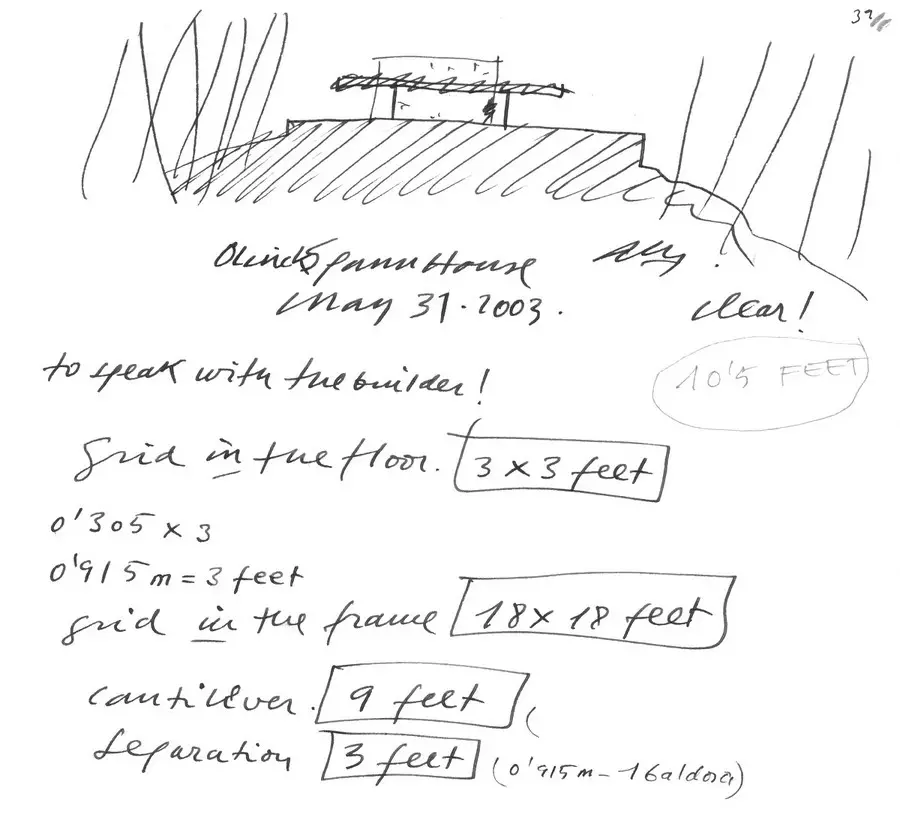 39
Olnick Spanu House
May 31 - 2003.
clear!
to speak with the builder!
10'5 FEET
grid in the floor. 3 x 3 feet
0'305 x 3
0'915 m = 3 feet
grid in the frame 18 x 18 feet
cantilever. 9 feet (
separation 3 feet (0'915m - 1 baldosa)